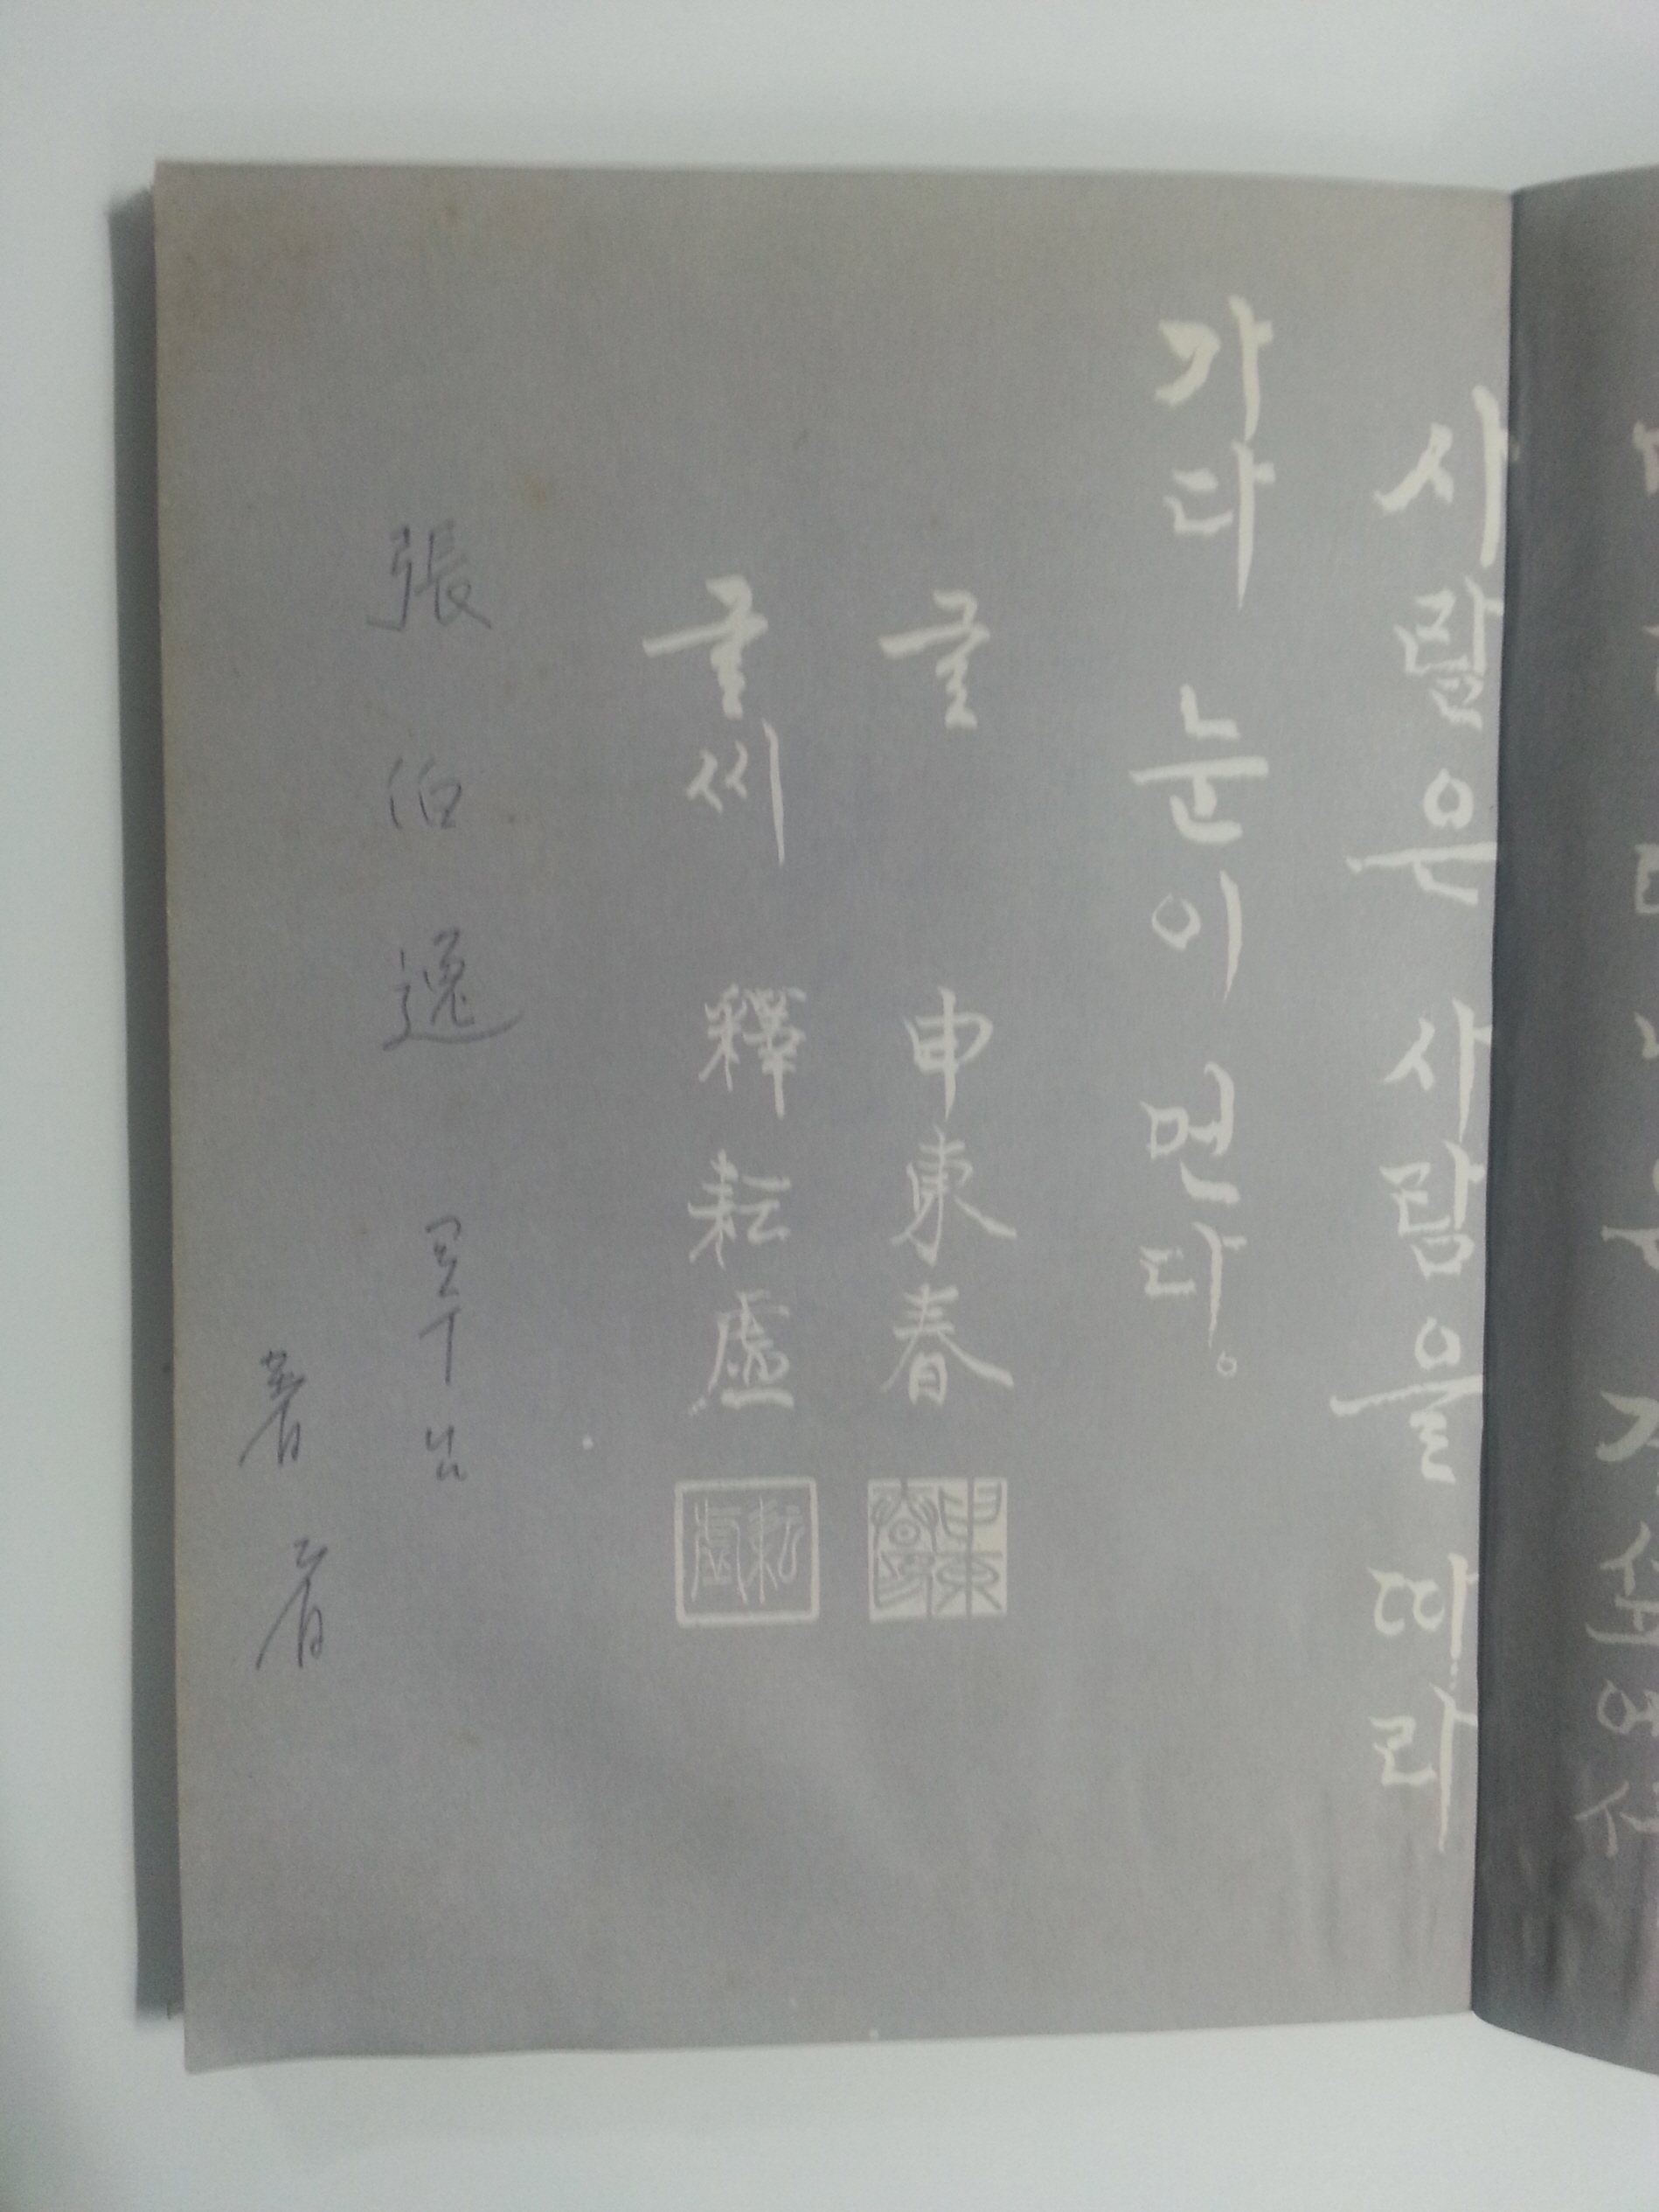 사람은 사람을 따라
가다 눈이 먼다.
글 申東春
글씨 釋耘虛
張伯逸 교수님
著者